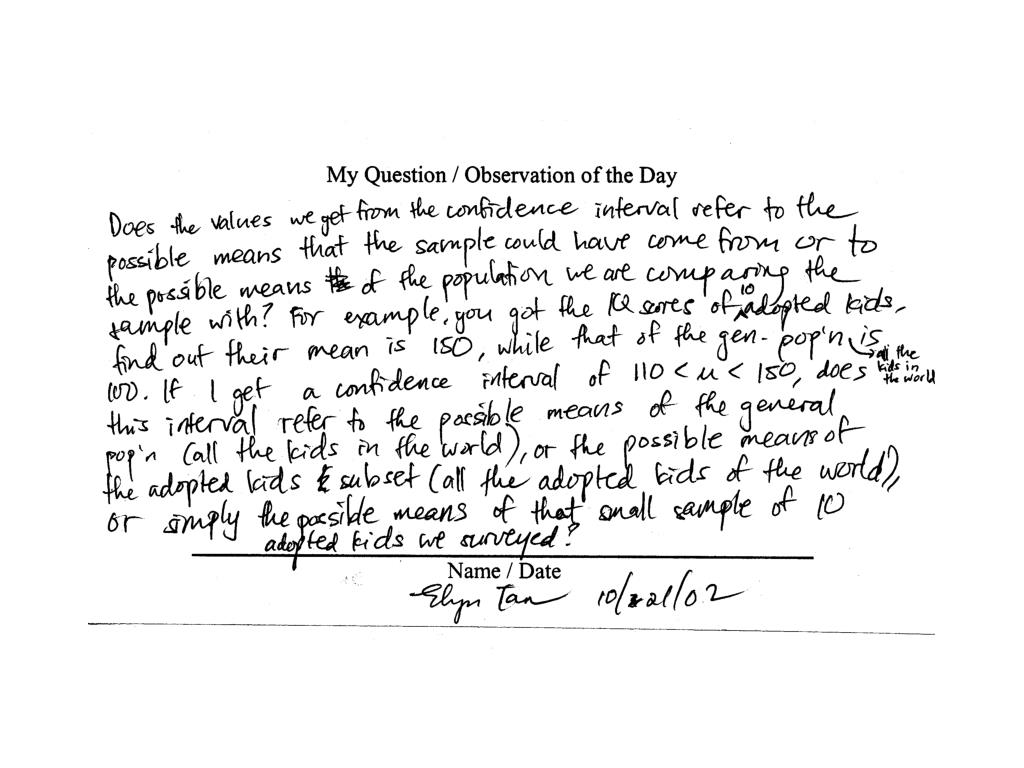 My Question / Observation of the Day
Does the values we get from the confidence interval refer to the
possible means that the sample could have come from or to
the possible means of the population we are comparing the
sample with? For example, you got the IQ scores of 10 adopted kids,
find out their mean is 150, while that of the gen. pop'n is
all the
kids in
the world
100. If I get a confidence interval of 110 < u < 150, does
this interval refer to the possible means of the general
pop'n (all the kids in the world), or the possible means of
the adopted kids subset (all the adopted kids of the world),
or simply the possible means of that small sample of 10
adopted kids we surveyed?
Name / Date
Elyn Tan 10/21/02